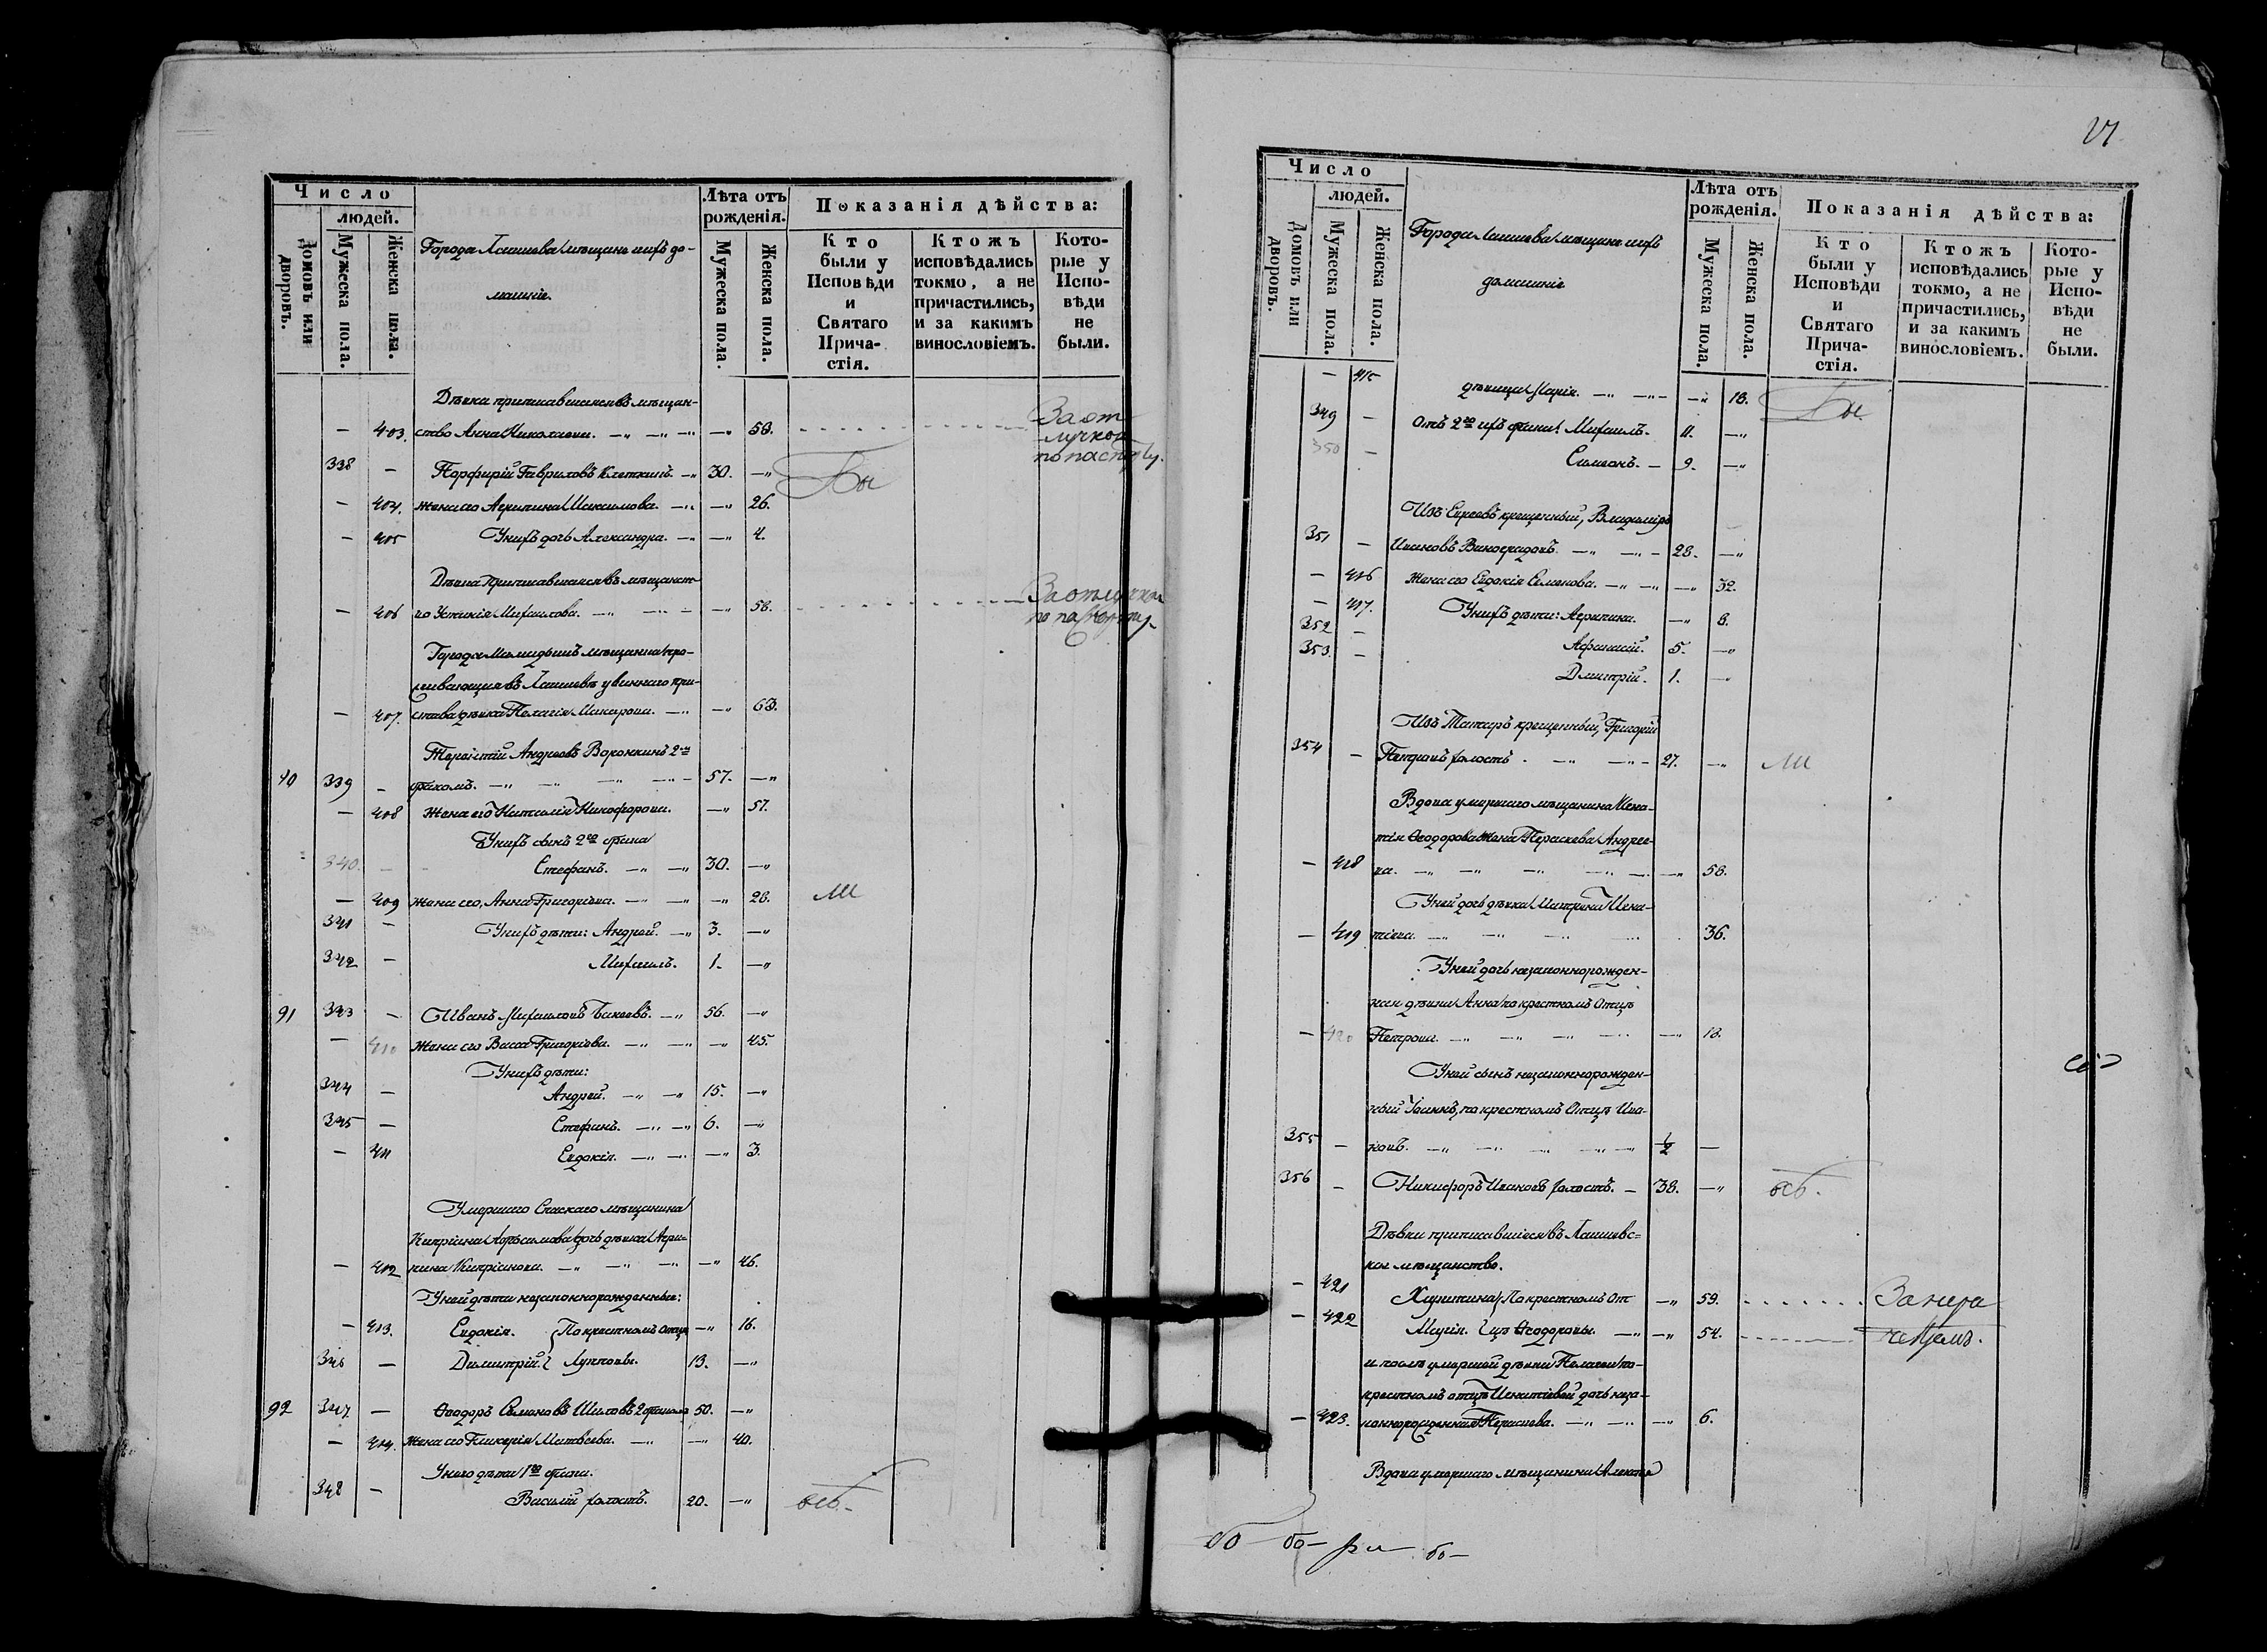 Число
людей.
Домовъ или дворовъ.
Мужеска пола.
Женска пола.
Города Лаишева мѣщане и ихъ до-
машніе.
Лѣта отъ рожденія.
Мужеска пола.
Женска пола.
Показанія дѣйства:
Кто были у Исповѣди и Святаго Причастія.
Ктожъ исповѣдались токмо, а не причастились, и за какимъ винословіемъ.
Которые у Исповѣди не были.
Дѣвка приписавшаяся въ мѣщан-
— 403. ство Анна Николаева. — — — 58. За от
лучкой
по паспорту.
338 — Порфирій Гавриловъ Клеткинъ. — 30. — Бы
— 404. жена его Агрипина Максимова. — — 26.
— 405 У нихъ дочь Александра. — — 4.
Дѣвка приписавшаяся въ мѣщанст-
— 406 во Устинія Михаилова. — — — 58. За отлучкой
по паспорту
Города Мамадышъ мѣщанка про-
живающая въ Лаишевѣ у виннаго при-
— 407. става дѣвка Пелагія Макарова. — — 63.
Терентій Андреевъ Воронкинъ 2мъ
90 339 — бракомъ. — — — — 57. —
— 408 Жена его Наталія Никифорова. — 57.
У нихъ сынъ 2го брака
340 — Стефанъ. — — 30. —
— 409 жена его, Анна Григорьева. — — — 28. ли
341 — У нихъ дѣти: Андрей. — 3. —
342 — Михаилъ. 1. —
91 343 — Иванъ Михаиловъ Бакеевъ. — 56. —
— 410 Жена его Васса Григорьева. — — — 45.
У нихъ дѣти:
344 — Андрей. — — 15. —
345 — Стефанъ. — — 6. —
— 411 Евдокія. — — — 3.
Умершаго Спаскаго мѣщанина
Кипріана дочь дѣвка Агри-
— 412 пина Кипріанова. — — — — 46.
У ней дѣти незаконнорожденные:
— 413. Евдокія. } По крестномъ отцѣ — 16.
346 — Димитрій. } 13. —
92 347 — Ѳеодоръ Семеновъ Шиловъ 2 бракомъ 50. —
— 414. Жена его Гликерія Матвѣева. — — 40.
У него дѣти 1го брака.
348 — Василій холостъ. 20. —
Число
людей.
Домовъ или дворовъ.
Мужеска пола.
Женска пола.
Города Лаишева мѣщане и ихъ
домашніе
Лѣта отъ рожденія.
Мужеска пола.
Женска пола.
Показанія дѣйства:
Кто были у Исповѣди и Святаго Причастія.
Ктожъ исповѣдались токмо, а не причастились, и за какимъ винословіемъ.
Которые у Исповѣди не были.
— 415 дѣвица Марія. — — — 18. Бы
349 — Отъ 2го ихъ брака: Михаилъ. 11. —
350 — Симеонъ. — 9. —
Изъ Евреевъ крещенный, Владиміръ
351 — Ивановъ Виноградовъ. — — 28. —
— 416 Жена его Евдокія Семенова. — — — 32.
— 417. У нихъ дѣти: Агрипина. — 8.
352 — Афанасій. 5. —
353. — Дмитрій. 1. —
Изъ Татаръ крещенный, Григорій
354 — Петровъ холостъ. — — 27. — ли
Вдова умершаго мѣщанина Игна-
тія Ѳеодорова жена Параскева Андрее-
— 418 ва. — — — — — 58.
У ней дочь дѣвка Матрена Игна-
— 419 тіева. — — — 36.
У ней дочь незаконнорожден-
ная дѣвка Анна по крестномъ Отцѣ
— 420 Петрова. — — — — — 18.
У ней сынъ незаконнорожден-
ный по крестномъ Отцѣ Ива-
355 — новъ. — — — — — 1/2 —
356 — Никифоръ Ивановъ холостъ. — 38. —
Дѣвки приписавшіеся въ Лаишевс-
кое мѣщанство.
— 421 Харитина } По крестномъ От — 59. За нера
— 422 Марія. } цѣ Ѳеодоровы. — — 54. чтенiемъ.
и послѣ умершей дѣвки Пелагеи по
крестномъ отцѣ Игнатіевой дочь неза-
— 423. коннорожденная Параскева. — — — 6.
Вдова умершаго мѣщанина Алексѣя